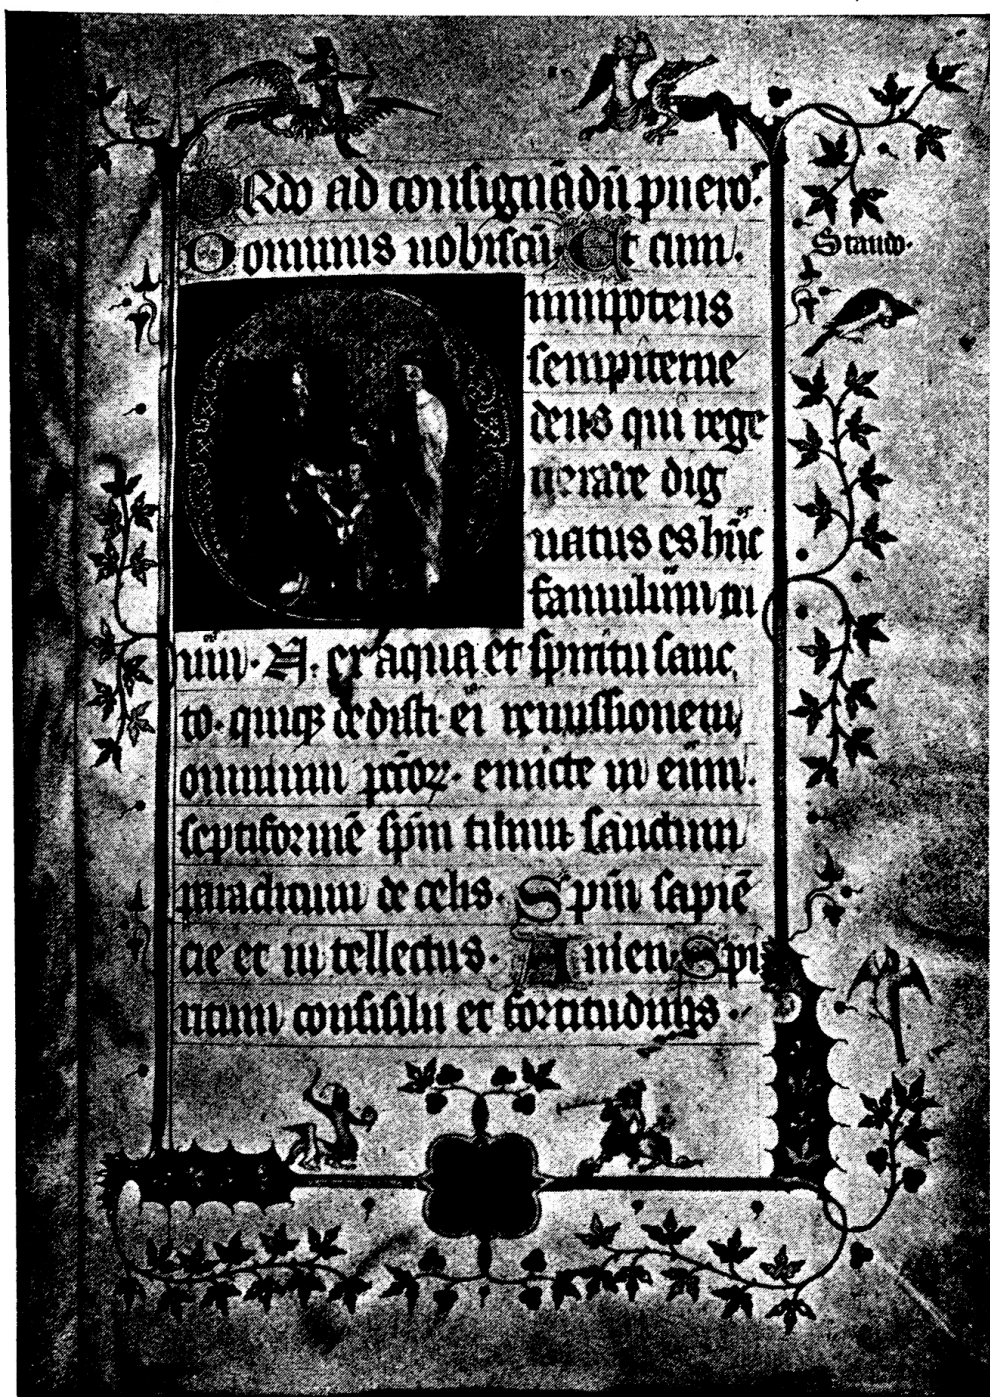 ORdo ad consignādū pueroꝝ.
Dominus uobiscū. Et cum.
Stando.
mnipotens
sempiterne
deus qui rege
nerare dig
natus es hūc os
famulum tu
um. N. ex aqua et spiritu sanc
to. quiqꝫ dedisti ei remissionem
omnium pccōꝝ. emicte in eum.
septiformē spm tuum sanctum
paraclitum de celis. Spm sapiē
cie et in tellectus. Amen. Spi
ritum consisilii et fortitudinis